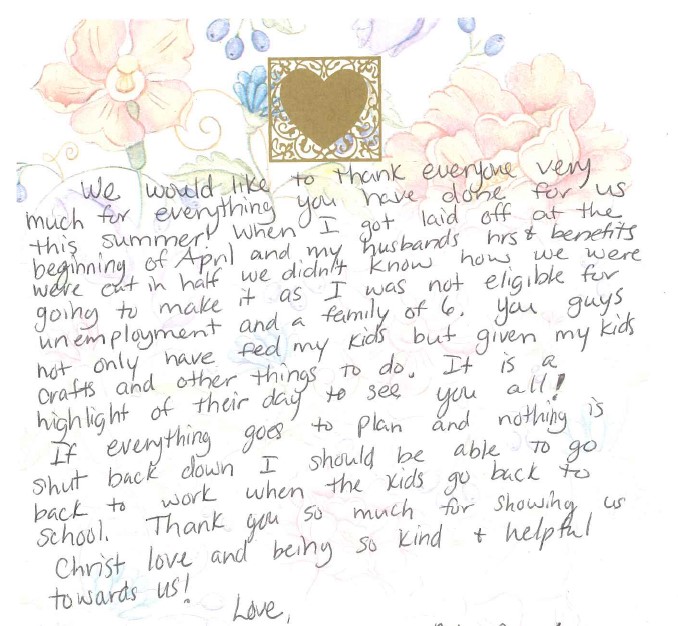 We would like to thank everyone very
much for everything you have done for us
this summer! When I got laid off at the
beginning of April and my husbands hrs & benefits
were cut in half we didn't know how we were
going to make it as I was not eligible for
unemployment and a family of 6. You guys
not only have fed my kids but given my kids
crafts and other things to do. It is a
highlight of their day to see you all!
If everything goes to plan and nothing is
shut back down I should be able to go
back to work when the kids go back to
school. Thank you so much for showing us
Christ love and being so kind & helpful
towards us!
Love,